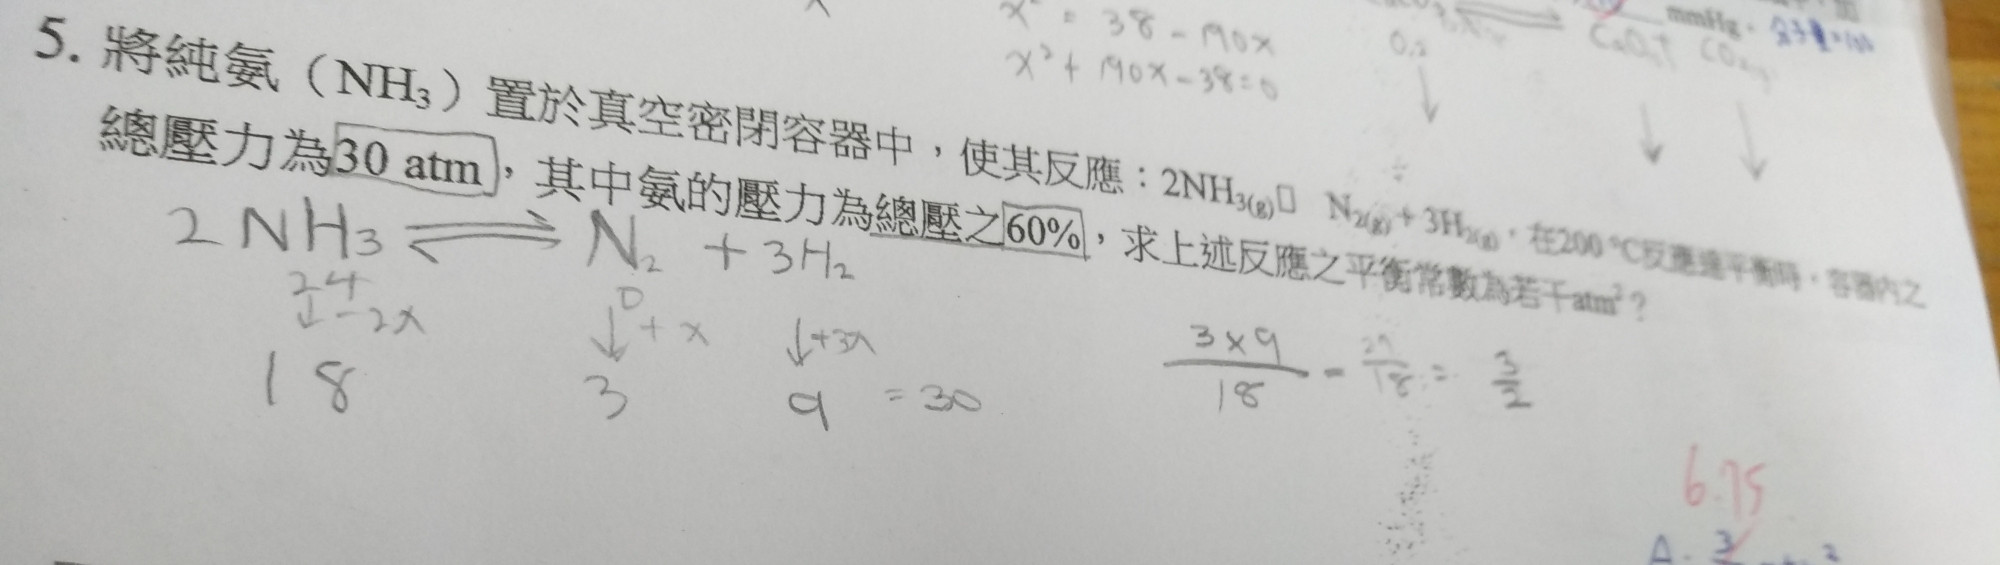 x² = 38 - 190x
x² + 190x - 38 = 0
0.2
mmHg。
5. 將純氨（NH₃）置於真空密閉容器中，使其反應：2NH₃(g)□ N₂(g) + 3H₂(g)，在200 ℃反應達平衡時，容器內之
總壓力為30 atm，其中氨的壓力為總壓之60%，求上述反應之平衡常數為若干atm²？
2NH₃ ⇌ N₂ + 3H₂
24 0
↓-2x ↓+x ↓+3x
18 3 9 = 30
3×9/18 = 27/18 = 3/2
6.75
A.